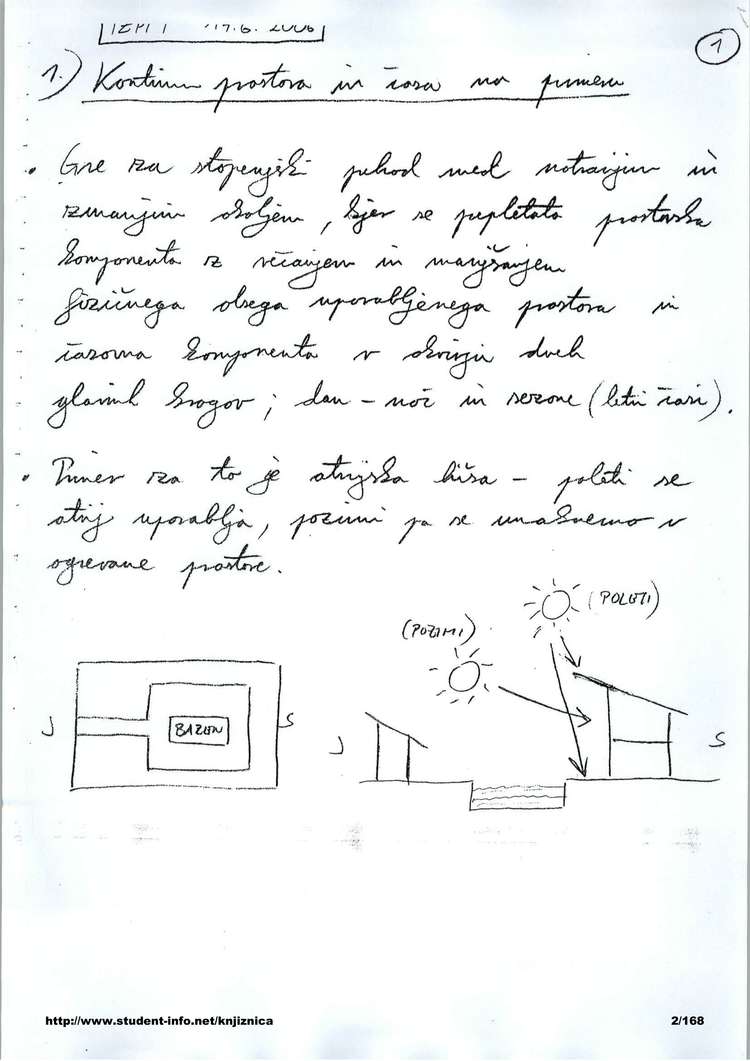 IZPIT 17.6.2006
1
1.) Kontinuum prostora in časa na primeru
• Gre za stopenjski prehod med notranjim in
zunanjim okoljem, kjer se prepletata prostorska
komponenta z večanjem in manjšanjem
fizičnega obsega uporabljenega prostora in
časovna komponenta v okviru dveh
glavnih krogov; dan - noč in sezone (letni časi).
• Primer za to je atrijska hiša - poleti se
atrij uporablja, pozimi pa se umaknemo v
ogrevane prostore.
(POLETI)
(POZIMI)
J
BAZEN
S
J
S
http://www.student-info.net/knjiznica
2/168